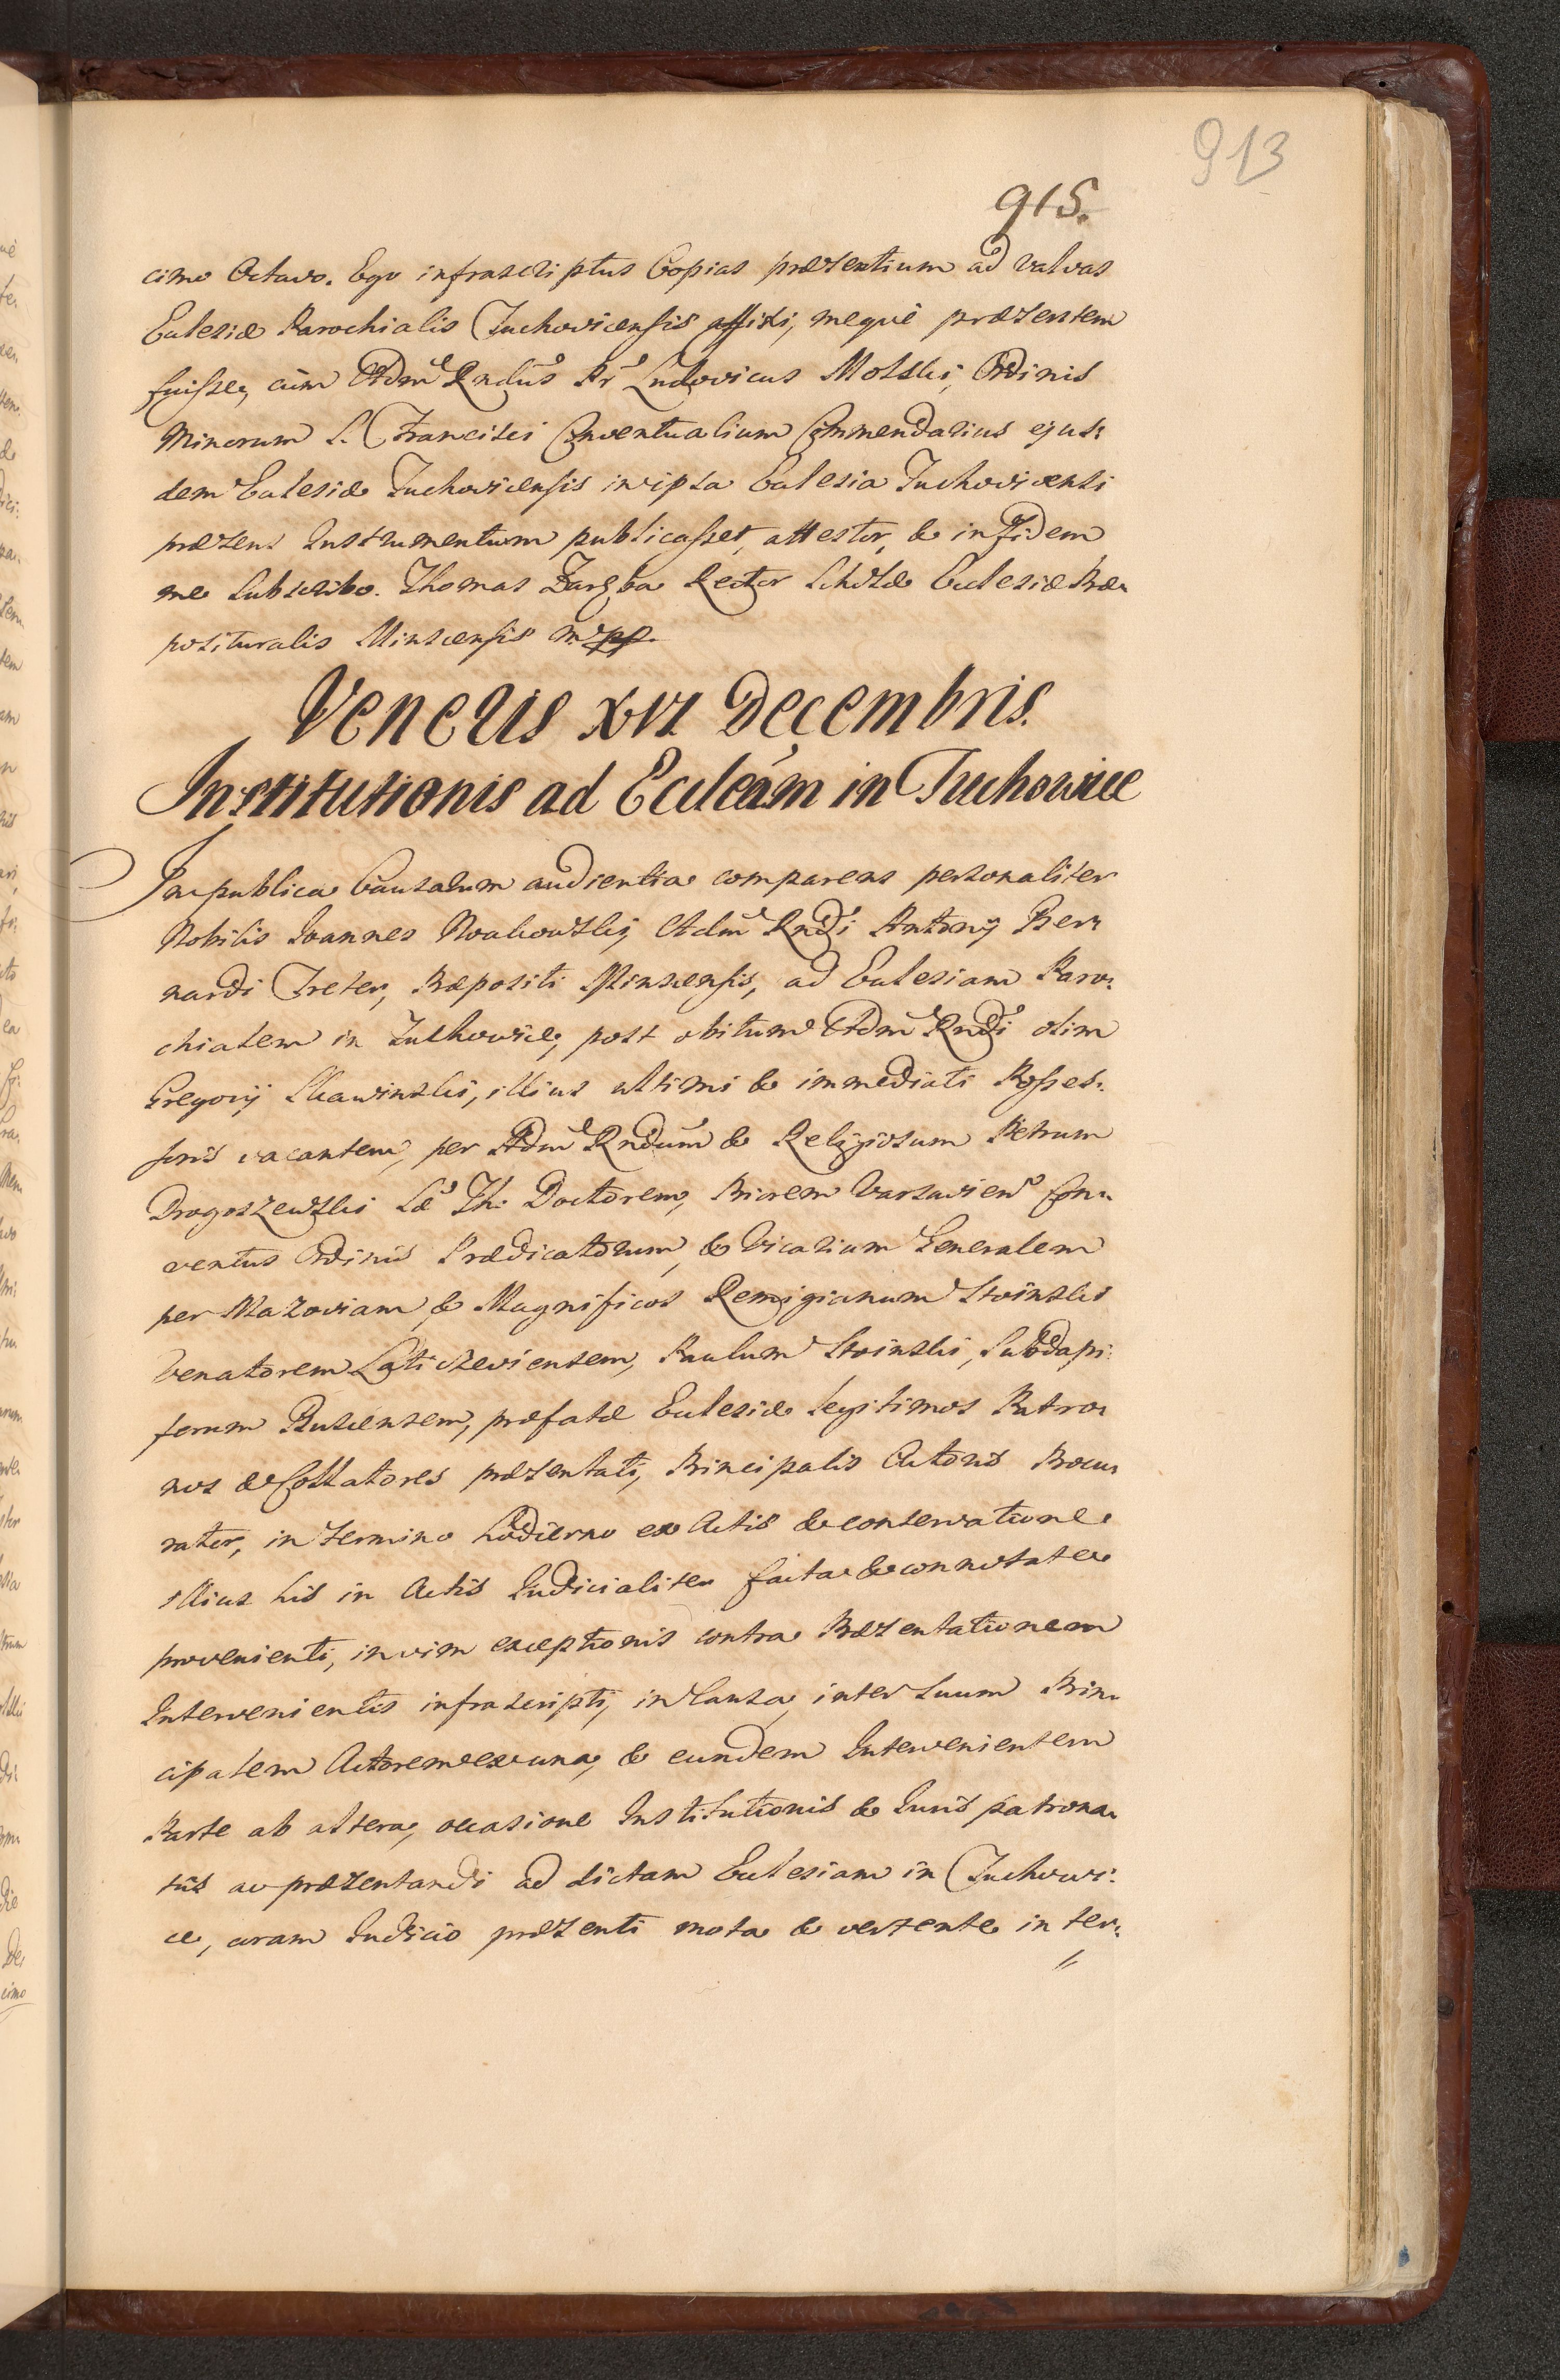 913
915.
cimo Octavo. Ego infrascriptus Copias præsentium ad valvas
Eclesiæ Parochialis Tuchovicensis affixi, mequè præsentem
fuisse, cùm Adm Rndus Pr Ludovicus Molski, Ordinis
Minorum S. Francisci Conventualium Commendarius ejus:
dem Eclesiæ Tuchovicensis in ipsa Eclesia Tuchovicensi
præsens Instrumentum publicasset, attestor, & in fidem
me subscribo. Thomas Zaręba Rector Scholæ Eclesiæ Præ:
posituralis Minscensis mpp.
Veneris XVI Decembris.
Institutionis ad Eccleam in Tuchowice
In publica Causarum audientia comparens personaliter
Nobilis Joannes Nowakowski, Adm Rndi Antonij Ber:
nardi Treter, Præpositi Minscensis, ad Eclesiam Paro:
chialem in Tuchowice, post obitum Adm Rndi olim
Gregorij Skawinski, illius ultimi & immediati Posses:
soris vacantem, per Adm Rndum & Religiosum Petrum
Drogoszewski Sæ Th: Doctorem, Priorem Varsavien Con:
ventus Ordinis Prædicatorum, & Vicarium Generalem
per Mazoviam & Magnificos Remigianum Stoinski
Venatorem Laticzeviensem, Paulum Stoinski, Subdapi:
ferum Buscensem, præfatæ Eclesiæ legitimos Patro:
nos & Collatores præsentati, Principalis Actoris Procu:
rator, in termino hodierno ex Actis & conservatione
illius his in Actis Judicialiter facta & connotata
provenienti, in vim exceptionis contra Præsentationem
Intervenientis infrascripti, in Causa, inter suum Prin:
cipalem Actorem ex una, & eundem Intervenientem
Parte ab altera, occasione Institutionis & Juris patrona:
tûs ac præsentandi ad dictam Eclesiam in Tuchowi:
ce, coram Judicio præsenti mota & vertente in ter: